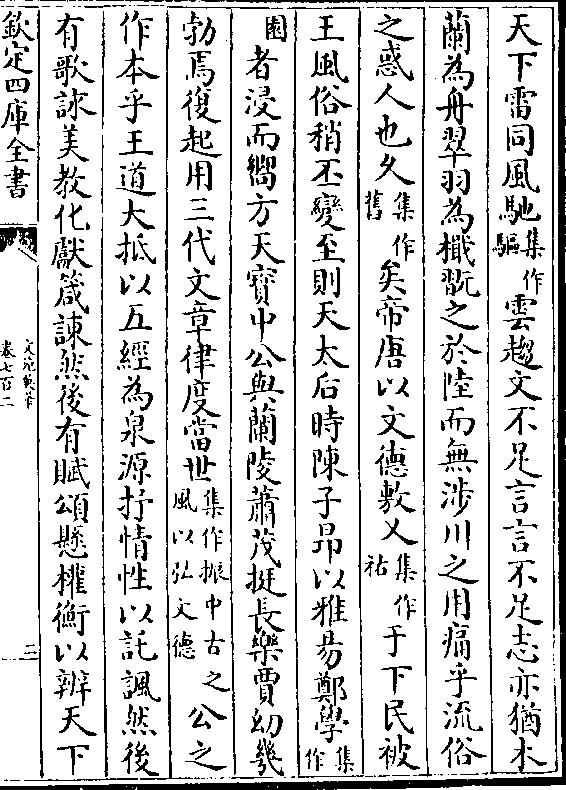 天下雷同風馳集作驅雲趨文不足言言不足志亦猶木
蘭為舟翠羽為檝翫之於陸而無涉川之用痛乎流俗
之惑人也久集作舊矣帝唐以文德敷乂集作祐于下民被
王風俗稍丕變至則天太后時陳子昻以雅易鄭學集作
園者浸而嚮方天寶中公與蘭陵蕭茂挺長樂賈幼幾
勃焉復起用三代文章律度當世集作振中古風以弘文德之公之
作本乎王道大抵以五經為泉源抒情性以託諷然後
有歌詠美教化獻箴諫然後有賦頌懸權衡以辨天下
欽定四庫全書
文苑英華
卷七百二
三